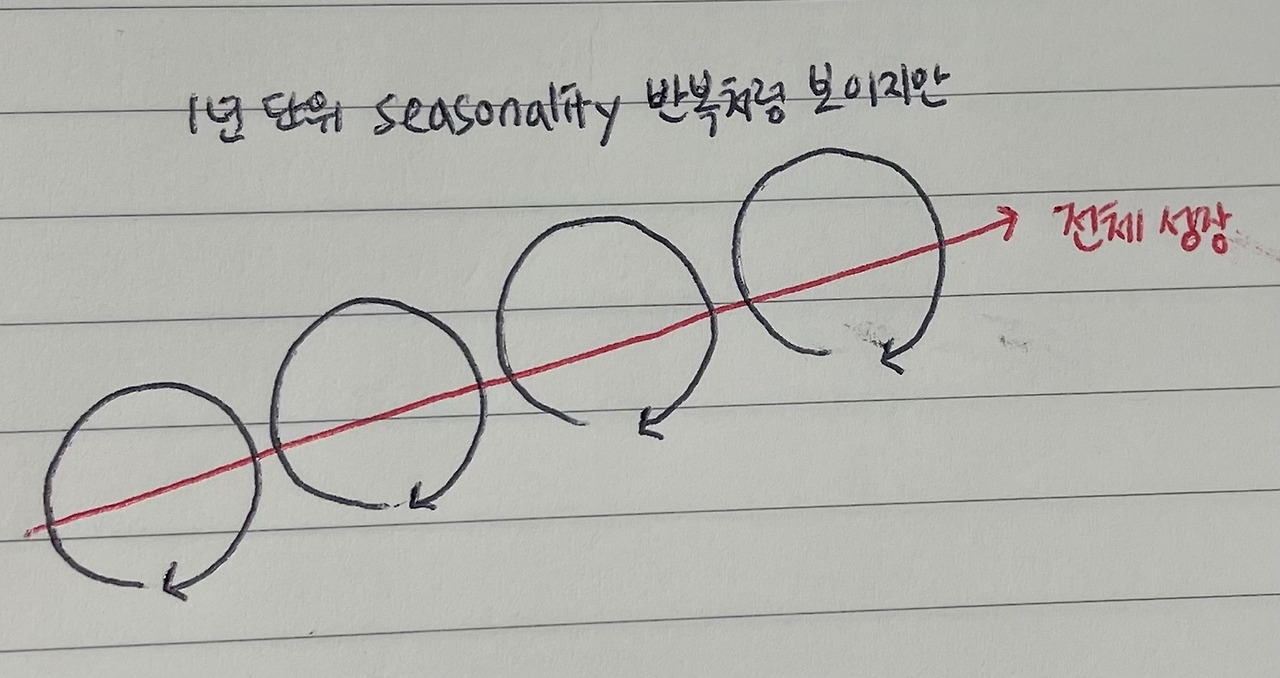 1년 단위 seasonality 반복처럼 보이지만
전체 성장